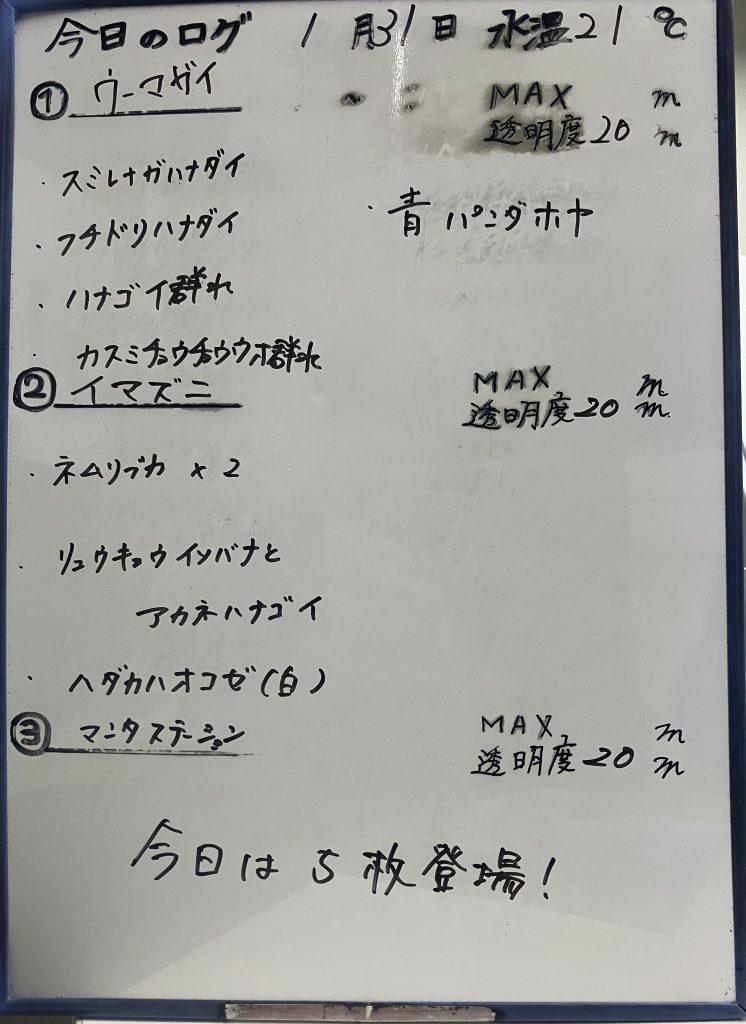 今日のログ 1月31日 水温21℃
① ウーマガイ
MAX m
透明度20 m
・スミレナガハナダイ
・フチドリハナダイ
・ハナゴイ群れ
・カスミチョウチョウウオ群れ
・青パンダホヤ
② イマズニ
MAX m
透明度20 m
・ネムリブカ ×2
・リュウキュウイソバナと
アカネハナゴイ
・ハダカハオコゼ(白)
③ マンタステーション
MAX m
透明度20 m
今日は5枚登場!